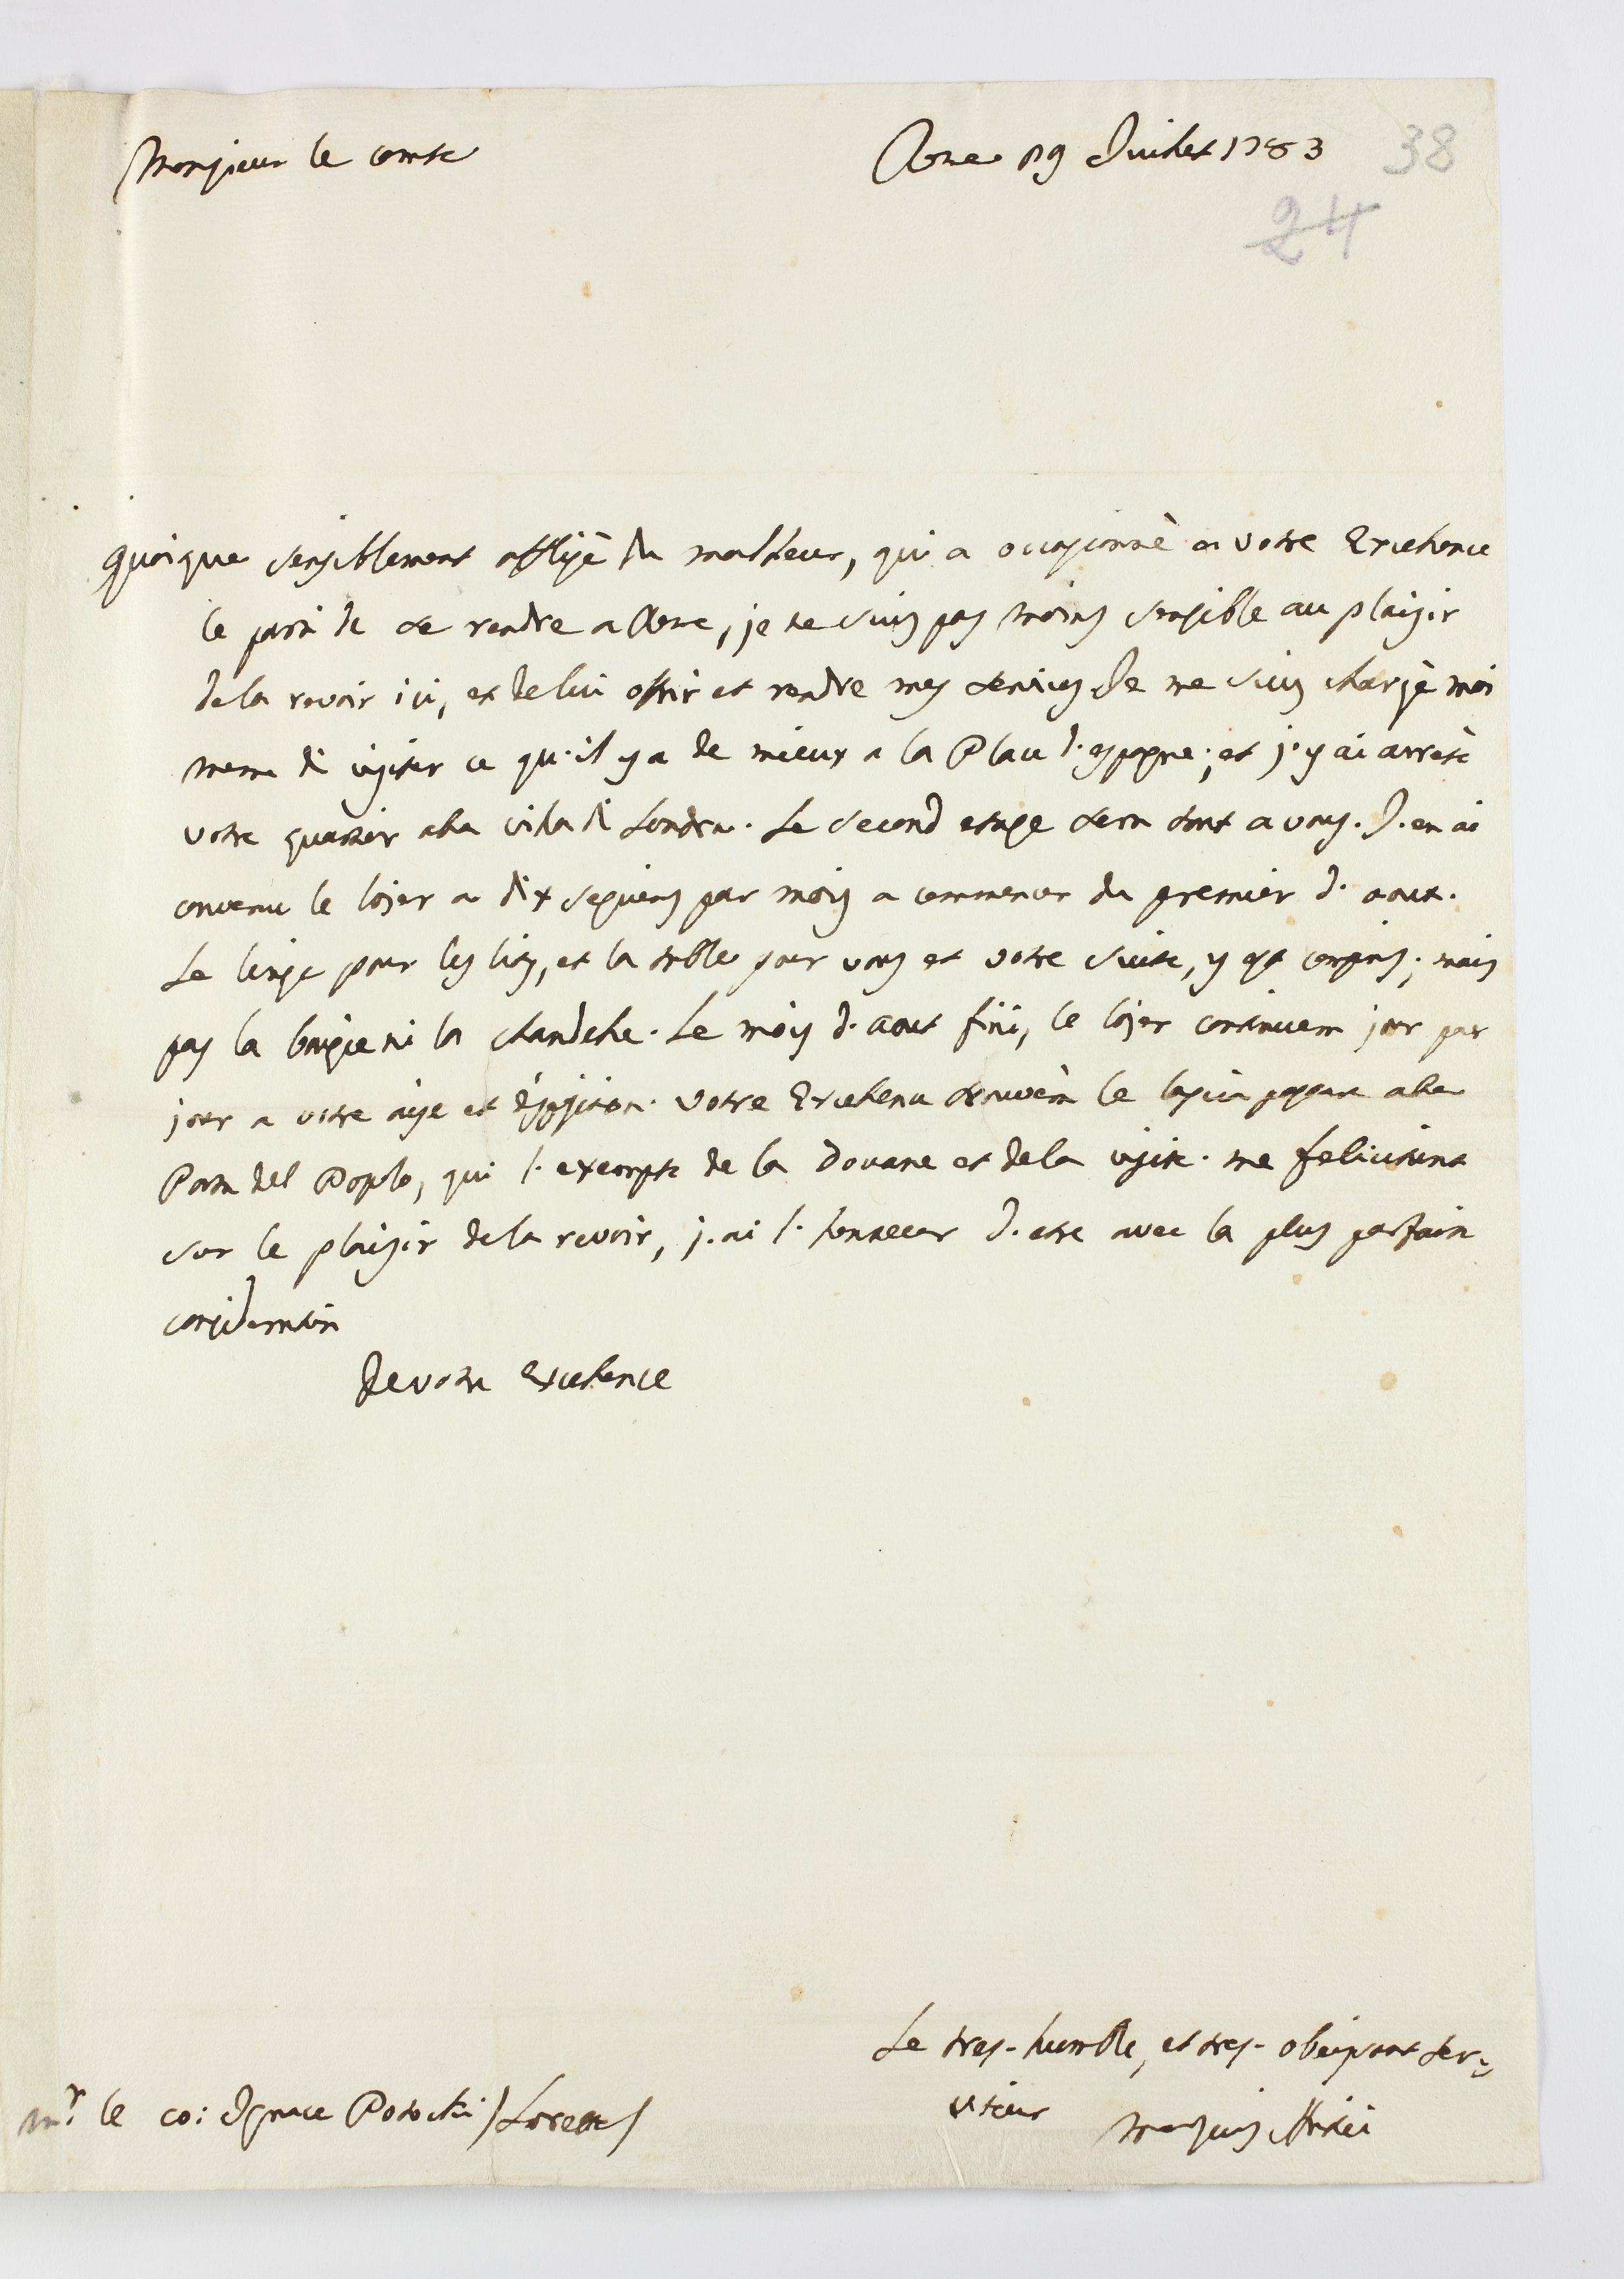 Monsieur le comte
Rome 19 Juillet 1783
38
24
quoique sensiblement affligè du malheur, qui a occasionnè a votre Excellence
le parti de se rendre a Rome, je ne suis pas moins sensible au plaisir
de la revoir ici, et de lui offrir et rendre mes services Je me suis chargè moi
meme de visiter ce qu'il y a de mieux a la Place d'espagne; et j'y ai arretè
votre quartier alla villa di Londra. Le second etage sera tout a vous. J'en ai
convenu le lojer a dix sequins par mois a commencer du premier d'aout.
Le linge pour les lits, et la table pour vous et votre suite, y est compris; mais
pas la bougie ni la chandelle. Le mois d'aout fini, le lojer continuera jour par
jour a votre aise et disposition. Votre Excellence trouvera le lascia passare alla
Porta del Popolo, qui l'exempte de la Douane et de la visite. me felicitant
sur le plaisir de la revoir, j'ai l'honneur d'etre avec la plus parfaite
consideration
De votre Excellence
Le tres-humble, et tres-obeissant ser=
viteur
Marquis Antici
Mr. le co: Ignace Potocki /Lorette/